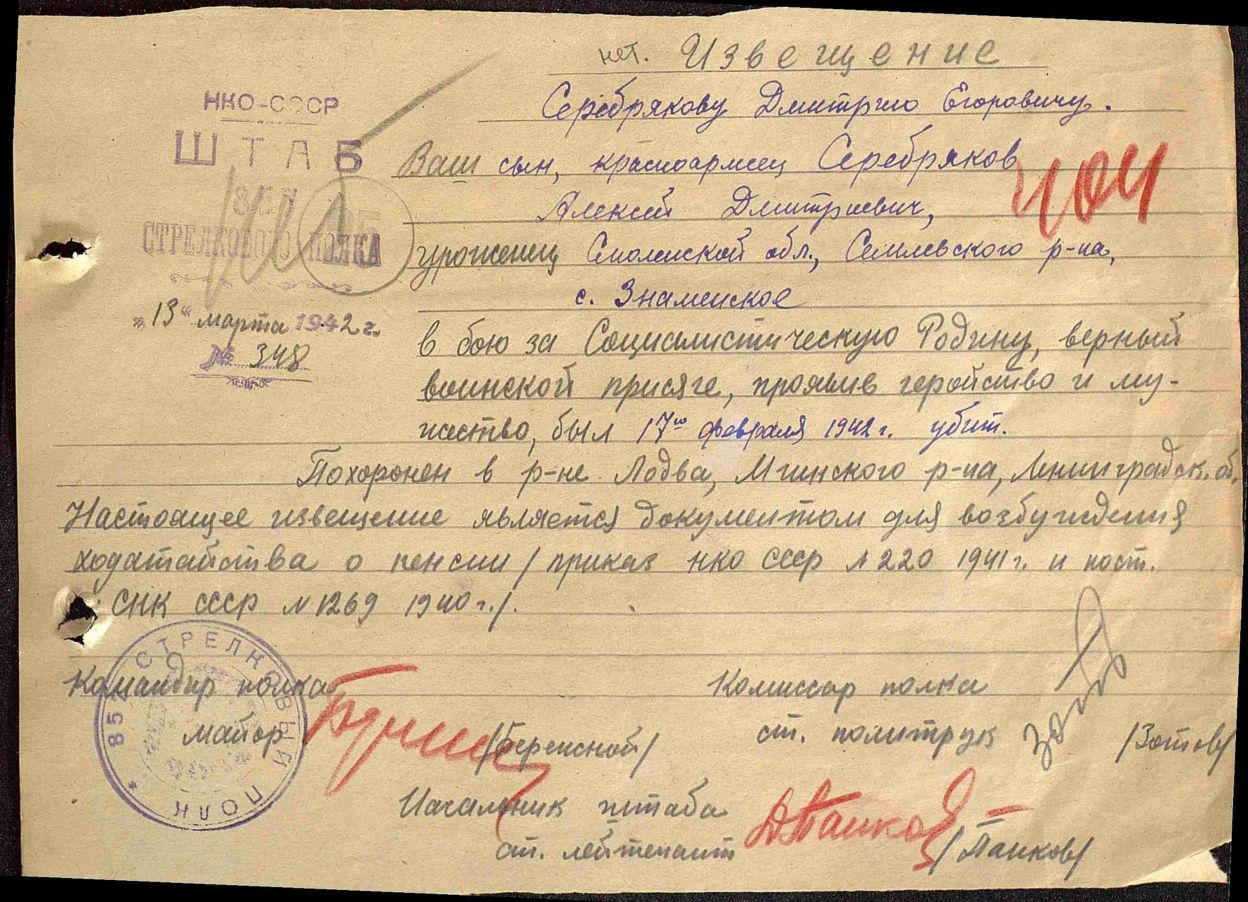 нет. Извещение
Серебрякову Дмитрию Егоровичу.
НКО-СССР
ШТАБ
СТРЕЛКОВОГО ПОЛКА
"13" марта 1942 г.
№ 348
Ваш сын, красноармеец Серебряков
Алексей Дмитриевич,
404
уроженец Смоленской обл., Семлевского р-на,
с. Знаменское
в бою за Социалистическую Родину, верный
воинской присяге, проявив геройство и му-
жество, был 17го февраля 1942 г. убит.
Похоронен в р-не Лодва, Мгинского р-на, Ленинградск. об.
Настоящее извещение является документом для возбуждения
ходатайства о пенсии /приказ НКО СССР №220 1941 г. и пост.
СНК СССР №1269 1940 г./.
852 СТРЕЛКОВЫЙ ПОЛК *
Командир полка
майор /Бережной/
Комиссар полка
ст. политрук /Зотов/
Начальник штаба
ст. лейтенант /Панков/